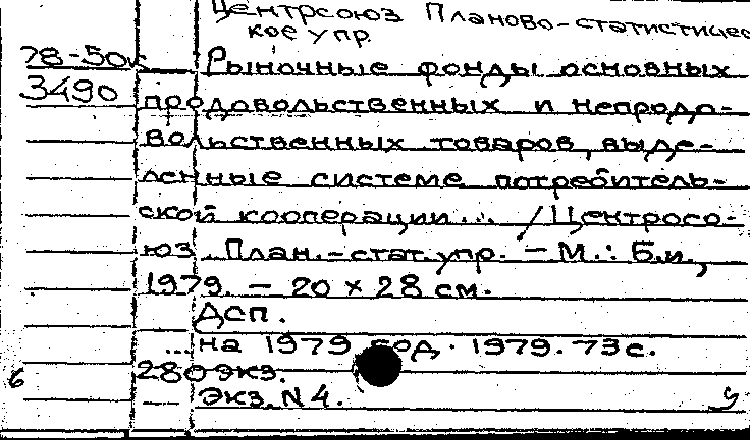 Центрсоюз Планово-статистичес
кое упр.
78-50к Рыночные фонды основных
3490 продовольственных и непродо-
вольственных товаров, выде-
ленные системе потребитель-
ской кооперации... / Центросо-
юз План.-стат. упр. - М.: Б.и.,
1979. - 20 х 28 см.
Дсп.
...на 1979 год. 1979. 73с.
6 280 экз.
Экз. N 4. У